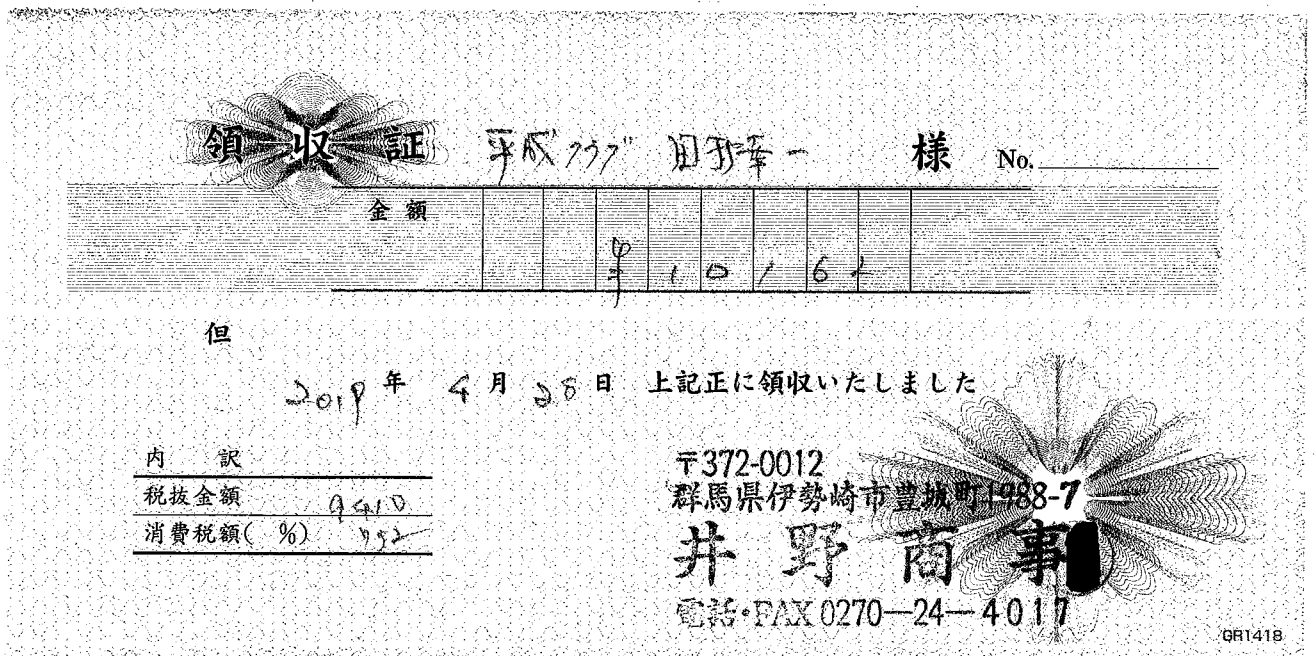 領収証 平成クラブ 様 No.
金額 ¥10162
但
2019年 4月 28日 上記正に領収いたしました
内 訳
税抜金額 9410
消費税額( %) 752
〒372-0012
群馬県伊勢崎市豊城町1988-7
井野商事
電話・FAX 0270―24―4017
GR1418